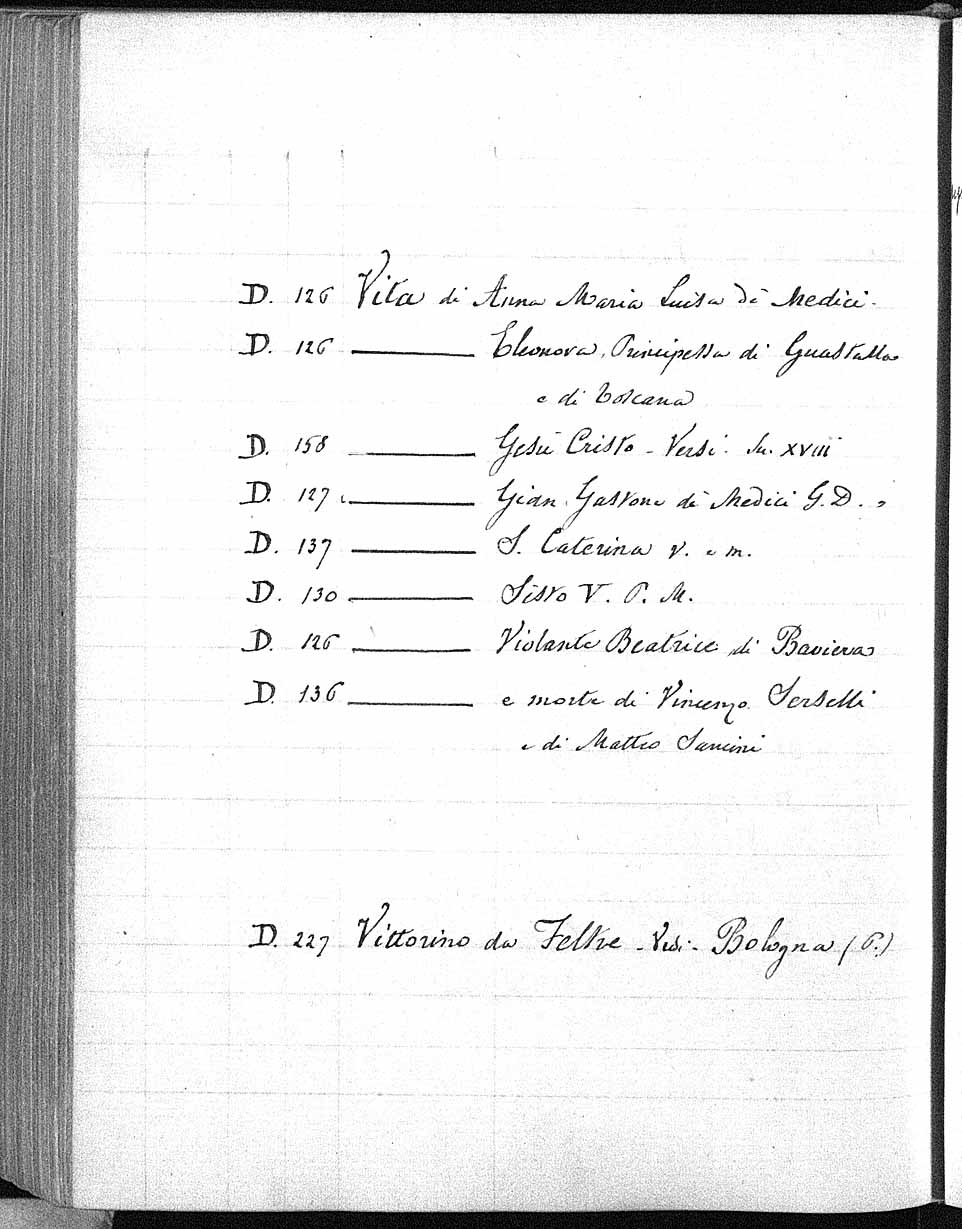 D. 126 Vita di Anna Maria Luisa de' Medici.
D. 126 ——— Eleonora, Principessa di Guastalla
e di Toscana
D. 158 ——— Gesù Cristo - Versi. Sec. XVIII
D. 127 ——— Gian Gastone de' Medici G. D.
D. 137 ——— S. Caterina v. e m.
D. 130 ——— Sisto V. P. M.
D. 126 ——— Violante Beatrice di Baviera
D. 136 ——— e morte di Vincenzo Serselli
e di Matteo
D. 227 Vittorino da Feltre - Vedi - Bologna (P.)